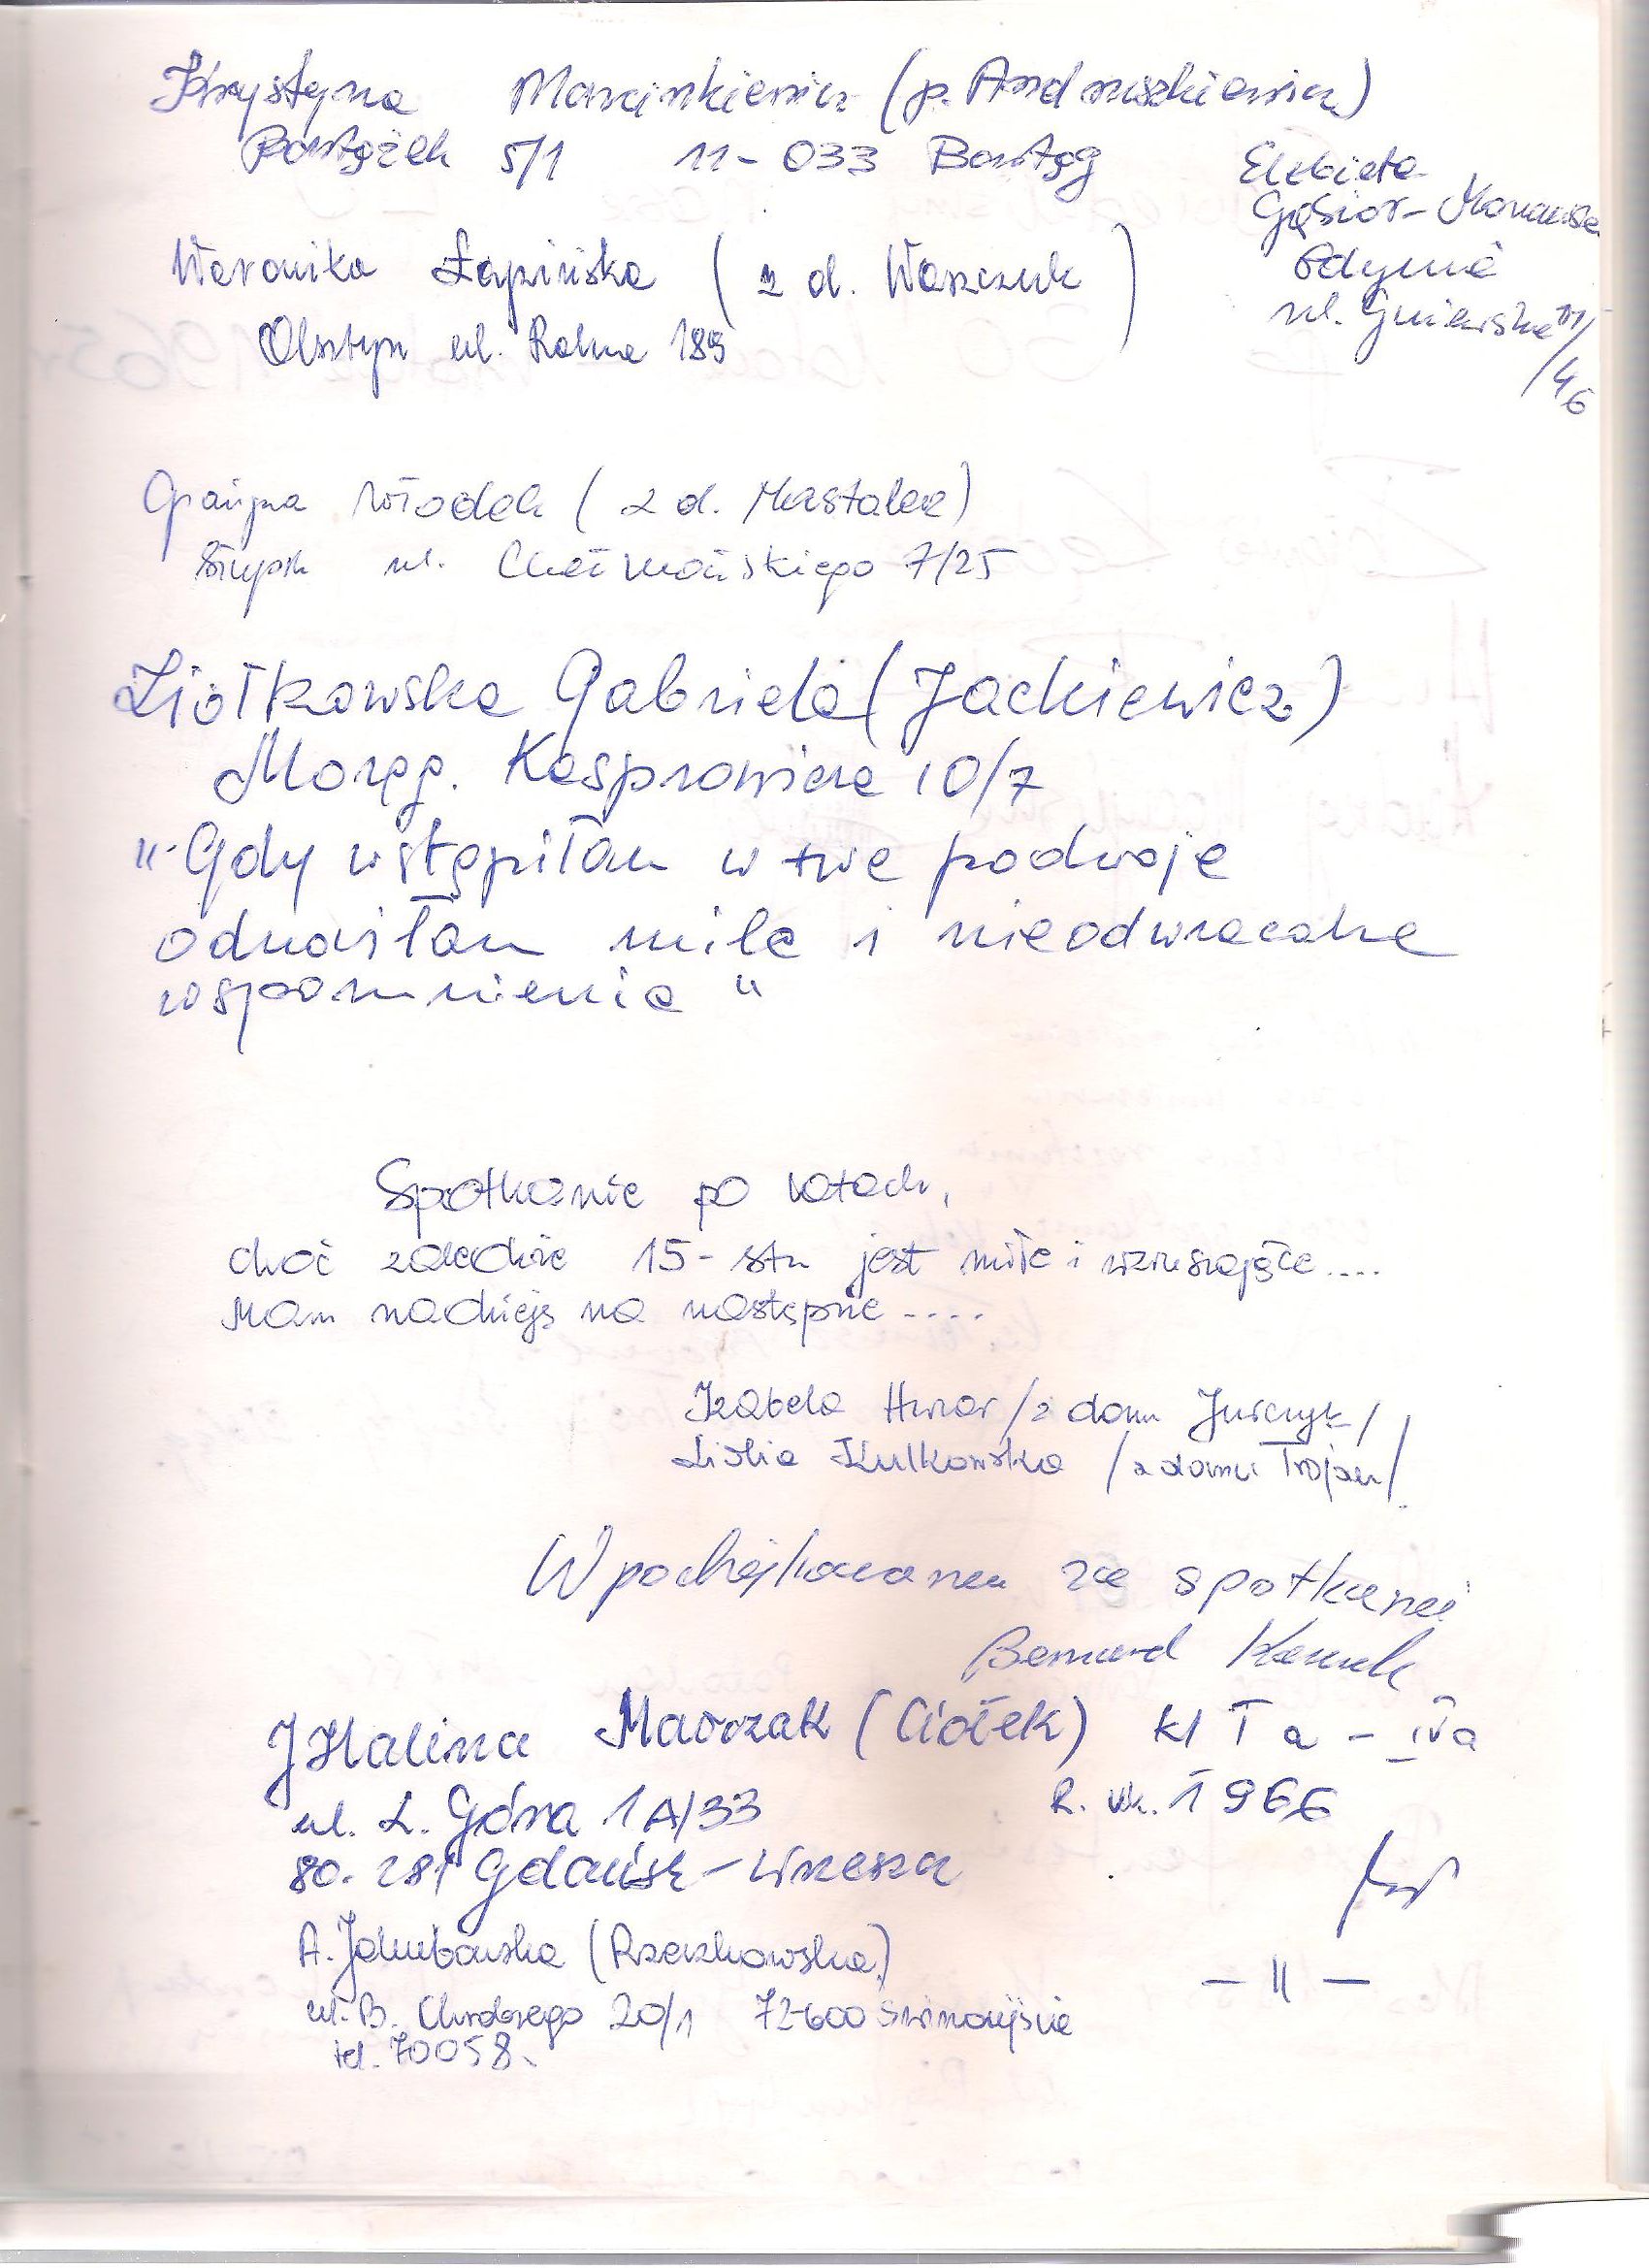 Krystyna Marcinkiewicz (p. Andruszkiewicz)
Bartążek 5/1 11-033 Bartąg
Elżbieta
Gąsior-
Gdynia
ul. Gniewska
/46
Weronika Łapińska (z d. Waszczuk)
Olsztyn ul. Rolna 189
Grażyna Włodek (z d. Mastalerz)
Słupsk ul. Chełmońskiego 7/25
Ziółkowska Gabriela (Jackiewicz)
Morąg. Kasprowicza 10/7
"Gdy wstąpiłam w twe podwoje
odnosiłam miłe i nieodwracalne
wspomnienia"
Spotkanie po latach,
choć zaledwie 15-stu jest miłe i wzruszające....
Mam nadzieję na następne ....
Izabela /z domu Jurczyk/
Lidia Kulkowska /z domu Trojan/
W podziękowaniu za spotkanie
Bernard
Halina Marczak (Ciołek) kl I a - IVa
ul. L. Góra 1A/33 R. uk. 1966
80-281 Gdańsk-Wrzeszcz
A. Jakubowska (Rzeszkowska)
ul. B. Chrobrego 20/1 72-600 Świnoujście
- II -
tel. 70058.